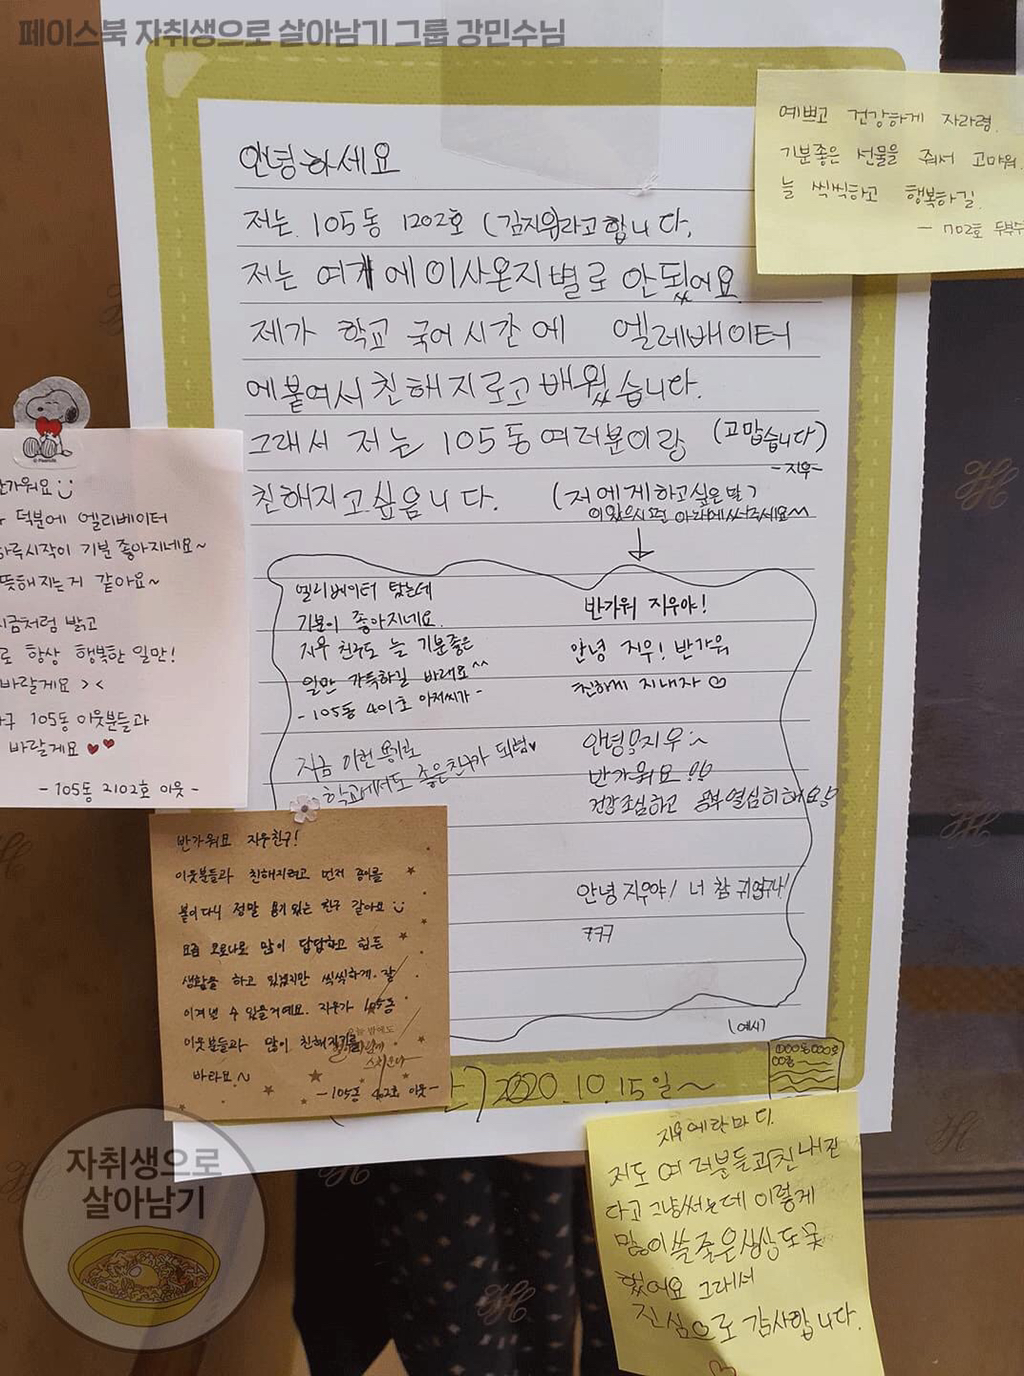 페이스북 자취생으로 살아남기 그룹 강민수님
안녕하세요
저는 105동 1202호 (김지우라고 합니다.
저는 여기에 이사온지 별로 안됬어요
제가 학교 국어 시간에 엘레베이터
에 붙여서 친해지로고 배웠습니다.
그래서 저는 105동 여러분이랑 (고맙습니다)
-지우-
친해지고 싶음니다. (저에게 하고싶은 말
이 있으시면 아래에 써주세요^^
엘리베이터 탔는데
기분이 좋아지네요.
지우 친구도 늘 기분좋은
일만 가득하길 바래요^^
-105동 401호 아저씨가-
지금 이런 용기로
학교에서도 좋은친구가 되렴♥
반가워 지우야!
안녕 지우! 반가워
친하게 지내자 ♡
안녕 지우
반가워요
건강 조심하고 공부 열심히 해요
안녕 지우야! 너 참 귀엽구나!
ㅋㅋㅋ
(예시)
2020.10.15일~
예쁘고 건강하게 자라렴.
기분좋은 선물을 줘서 고마워.
늘 씩씩하고 행복하길.
- 702호
반가워요
덕분에 엘리베이터
하루시작이 기분 좋아지네요~
뜻해지는거 같아요~
지금처럼 밝고
로 항상 행복한 일만!
바랄게요 > <
105동 이웃분들과
바랄게요 ♥♥
-105동 2102호 이웃-
반가워요 지우친구!
이웃분들과 친해지려고 먼저 종이를
붙이다니 정말 용기있는 친구 같아요
요즘 코로나로 많이 답답하고 힘든
생활을 하고 있겠지만 씩씩하게 잘
이겨낼 수 있을거예요. 지우가 105동
이웃분들과 많이 친해지기를
바라요~
오늘 밤에도
별이 바람에
스치운다
-105동 402호 이웃-
지우에 한마디.
저도 여러분들과 친해진
다고 그냥써는데 이렇게
많이 쓸 줄은 상상도 못
했어요 그래서
진심으로 감사합니다.
자취생으로
살아남기